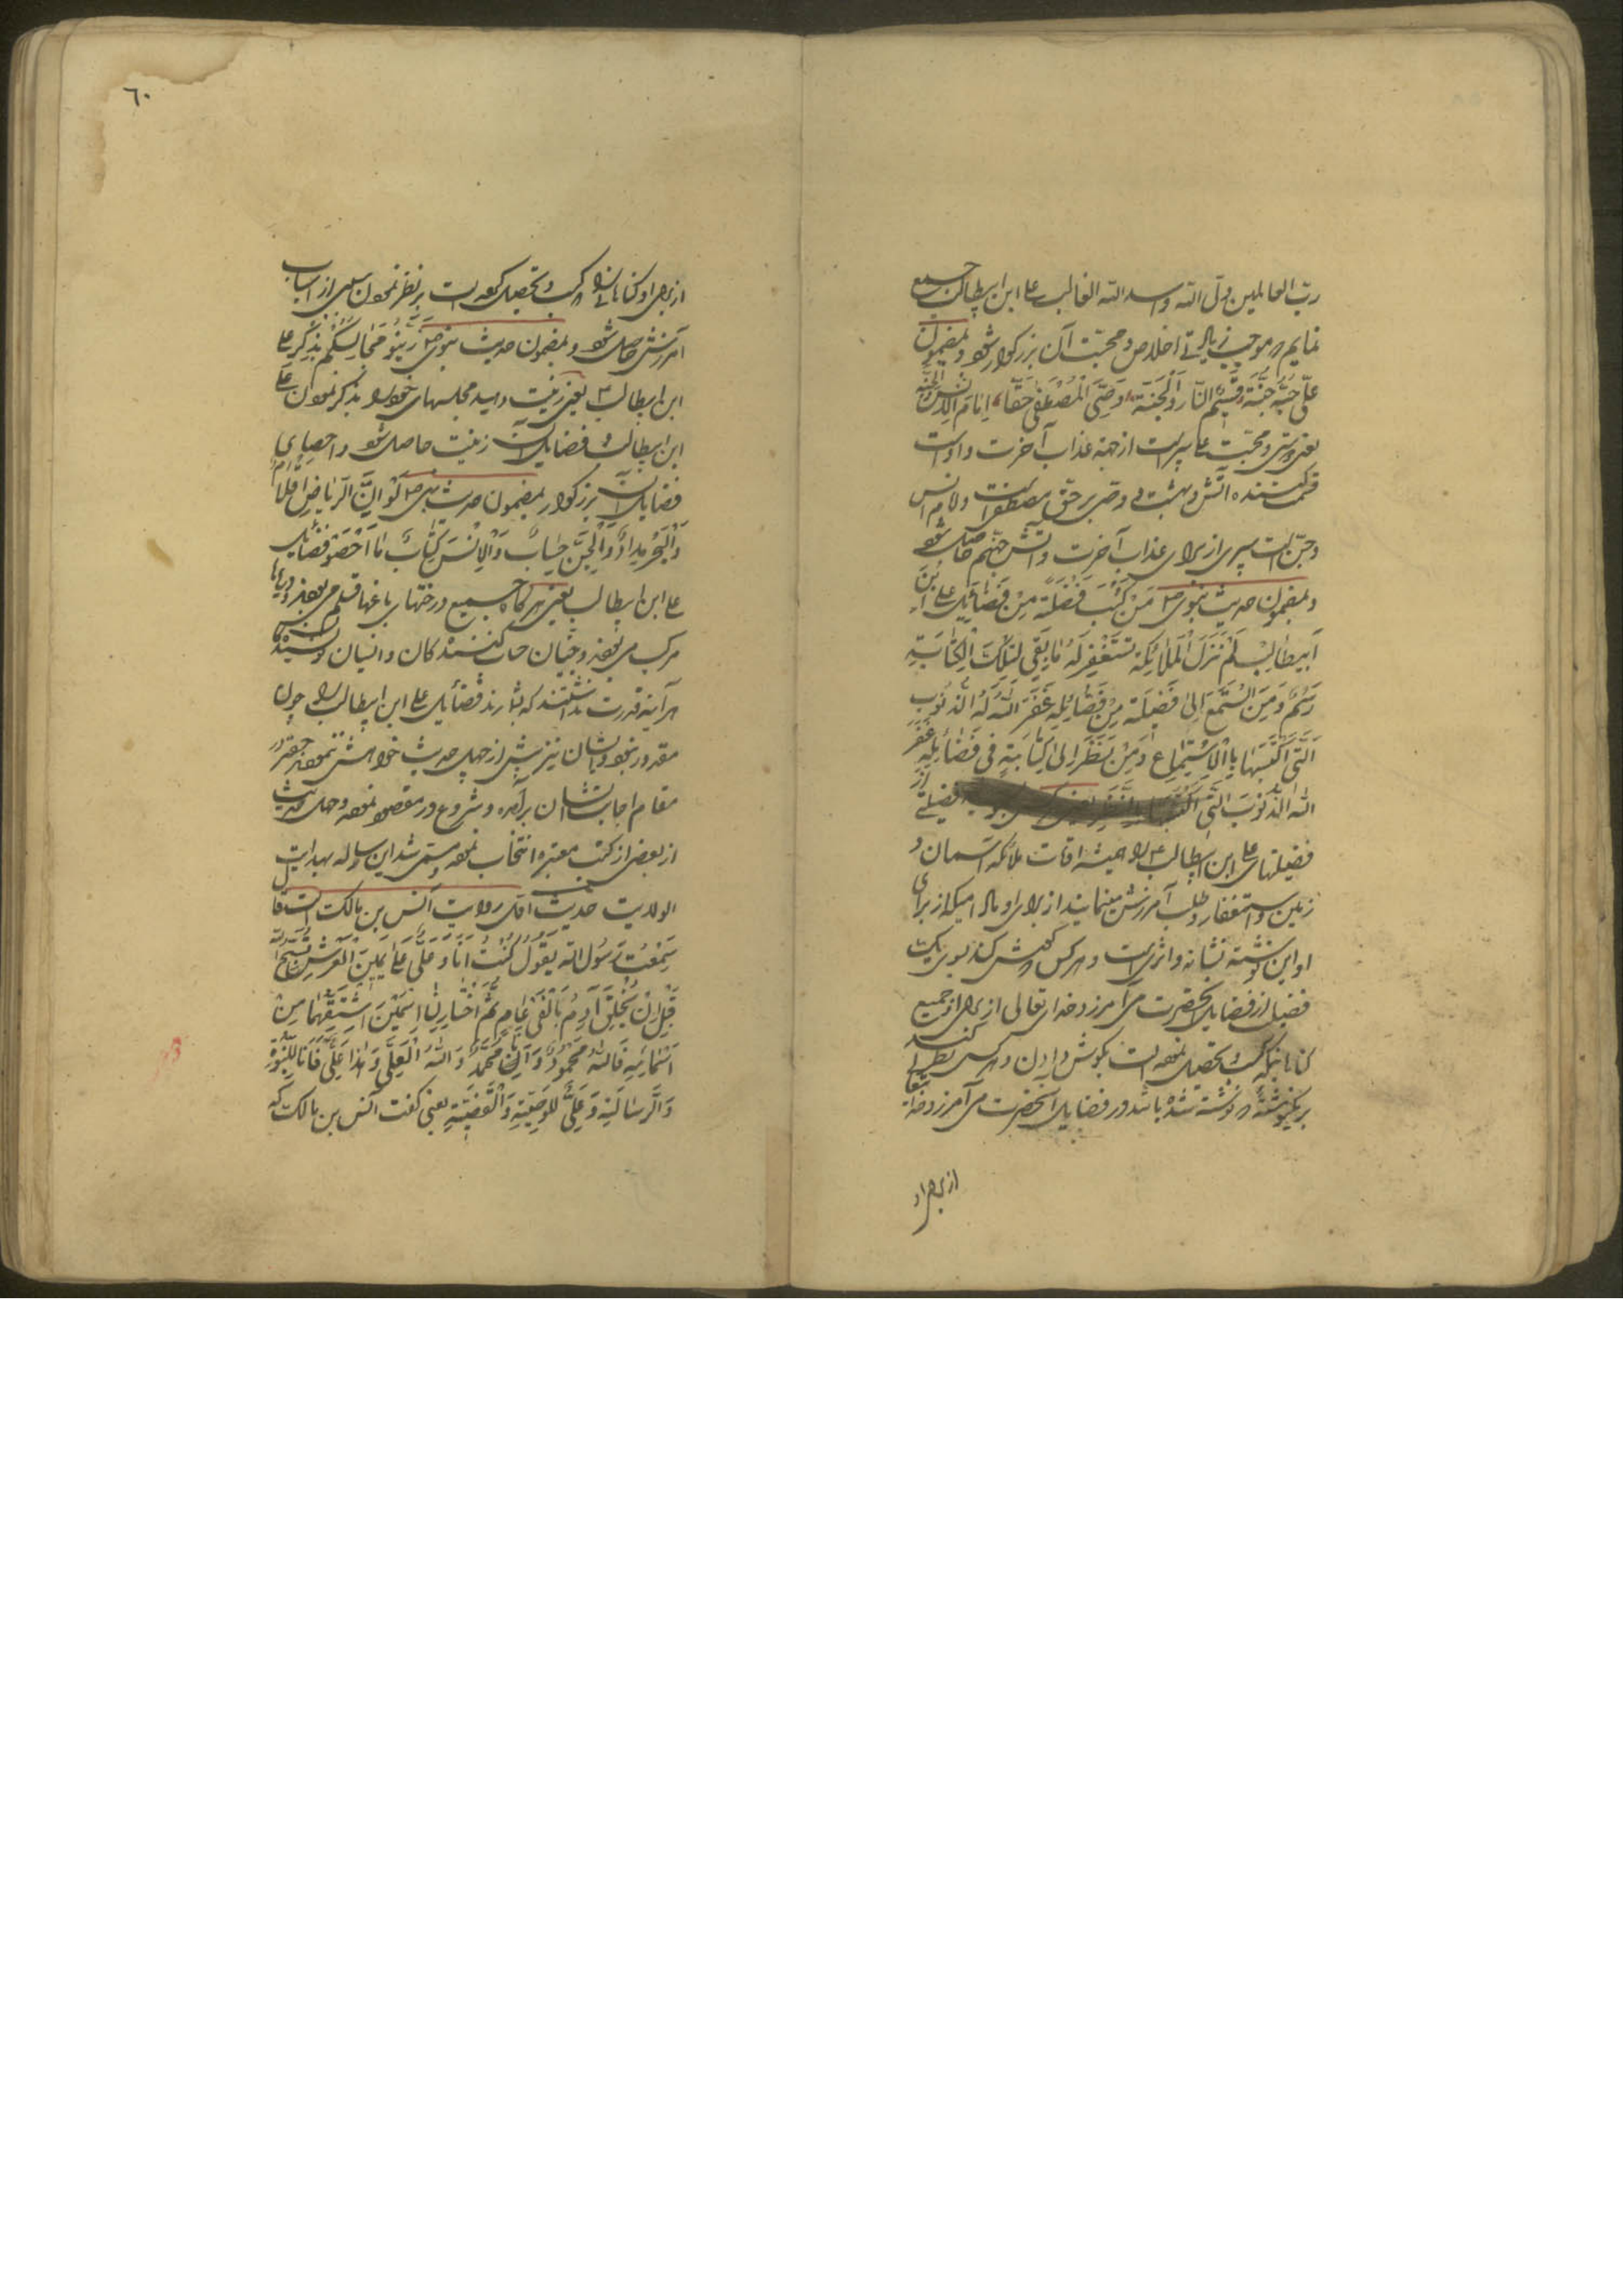 رب العالمین ولی الله و اسد الله الغالب علی ابن ابیطالب جمیع
نمایم که موجب زیادتی اخلاص و محبت آن بزرگوار شود و بمضمون
علی حبه جنة قسیم النار و الجنة وصی المصطفی حقا امام الانس و الجنة
یعنی دوستی و محبت علی سپر است از جهة عذاب آخرت و اوست
قسمت کننده آتش و بهشت و وصی بر حق مصطفی است و امام انس
و جن است سپری از برای عذاب آخرت و آتش جهنم حاصل شود
و بمضمون حدیث نبوی ص من کتب فضلة من فضائل علی ابن
ابیطالب لم تزل الملائکة تستغفر له ما بقی لتلک الکتابة
رسم و من استمع الی فضیلة من فضائله غفر الله له الذنوب
التی اکتسبها بالاستماع و من نظر الی کتابة فی فضائله غفر
الله الذنوب التی اکتسبها بالنظر یعنی فضیلتی از
فضیلتهای علی ابن ابیطالب ع را همیشه اوقات ملائکه آسمان و
زمین استغفار و طلب آمرزش مینمایند از برای او مادامیکه از برای
او این نوشته نشانه و اثری است و هر کس گوش کند بسوی یک
فضیلت از فضایل آنحضرت می آمرزد خدای تعالی از برای او جمیع
گناهانیکه کسب و تحصیل نموده است بگوش دادن و هر کس نظر کند
بر نوشته که نوشته شده باشد در فضایل آنحضرت می آمرزد خدای تعالی
از برای او
٦٠
از برای او گناهانی را که کسب و تحصیل کرده است بر نظر نمودن سببی از اسباب
آمرزش حاصل شود و بمضمون حدیث نبوی ص زینوا مجالسکم بذکر علی
ابن ابیطالب ع یعنی زینت دهید مجلسهای خود را بذکر نمودن علی
ابن ابیطالب و فضایل آن زینت حاصل شود و احصای
فضایل آن بزرگوار بمضمون حدیث نبوی ص لو ان الریاض اقلام
و البحر مداد و الجن حساب و الانس کتاب ما احصوا فضایل
علی ابن ابیطالب یعنی هرگاه جمیع درختهای باغها قلم می بودند و دریاها
مرکب می بودند و جنیان حساب کنندگان و انسیان نویسندگان
هر آینه قدرت نداشتند که بشمارند فضایل علی ابن ابیطالب را چون
مقدور نبود و ایشان نیز بیش از چهل حدیث خواهش ننمودند حقیر در
مقام اجابت ایشان برآمده و شروع در مقصود نموده و چهل حدیث
از بعضی از کتب معتبره انتخاب نموده و مسمی شد این رساله بهدایت
الولایت حدیث اول روایت انس بن مالک است قال
سمعت رسول الله یقول کنت انا و علی علی یمین العرش نسبح الله
قبل ان یخلق آدم بالفی عام ثم اختار لنا اسمین اشتقهما من
اسمائه فالله محمود و انا محمد و الله العلی و هذا علی فانا للنبوة
و الرسالة و علی للوصیة و القضیة یعنی گفت انس بن مالک که